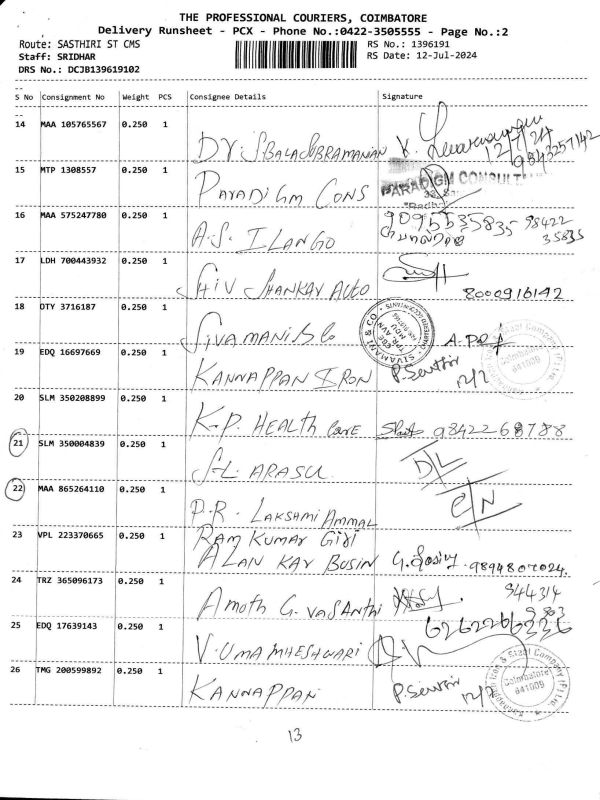 THE PROFESSIONAL COURIERS, COIMBATORE
Delivery Runsheet - PCX - Phone No.:0422-3505555 - Page No.:2
Route: SASTHIRI ST CMS RS No.: 1396191
Staff: SRIDHAR RS Date: 12-Jul-2024
DRS No.: DCJB139619102
S No Consignment No Weight PCS Consignee Details Signature
14 MAA 105765567 0.250 1 Dr. S BALASUBRAMANIAN K. 12/7/24 9843257142
15 MTP 1308557 0.250 1 PARADIGM CONS PARADIGM CONSULTA
16 MAA 575247780 0.250 1 A.S. ILANGO 9095535835 98422 35835
17 LDH 700443932 0.250 1 SHIV SHANKAR AUTO 8000916142
18 DTY 3716187 0.250 1 SIVAMANI & Co SIVAMANI & CO
19 EDQ 16697669 0.250 1 KANNAPPAN IRON P. Senthir 12/7 Coimbatore 641009
20 SLM 350208899 0.250 1 K.P. HEALTH CARE 9842268788
21 SLM 350004839 0.250 1 S.L. ARASU D/L
22 MAA 865264110 0.250 1 P.R. LAKSHMI AMMAL C/N
23 VPL 223370665 0.250 1 RAM KUMAR GIRI
ALAN KAR BUSIN 9894807024.
24 TRZ 365096173 0.250 1 Amoth G. VASANTHI 944314
25 EDQ 17639143 0.250 1 V. UMA MHESHWARI 6262266336
26 TMG 200599892 0.250 1 KANNAPPAN P. Senthir 12/7 Kannappan Iron & Steel Company (P) Ltd. Coimbatore 641009
13